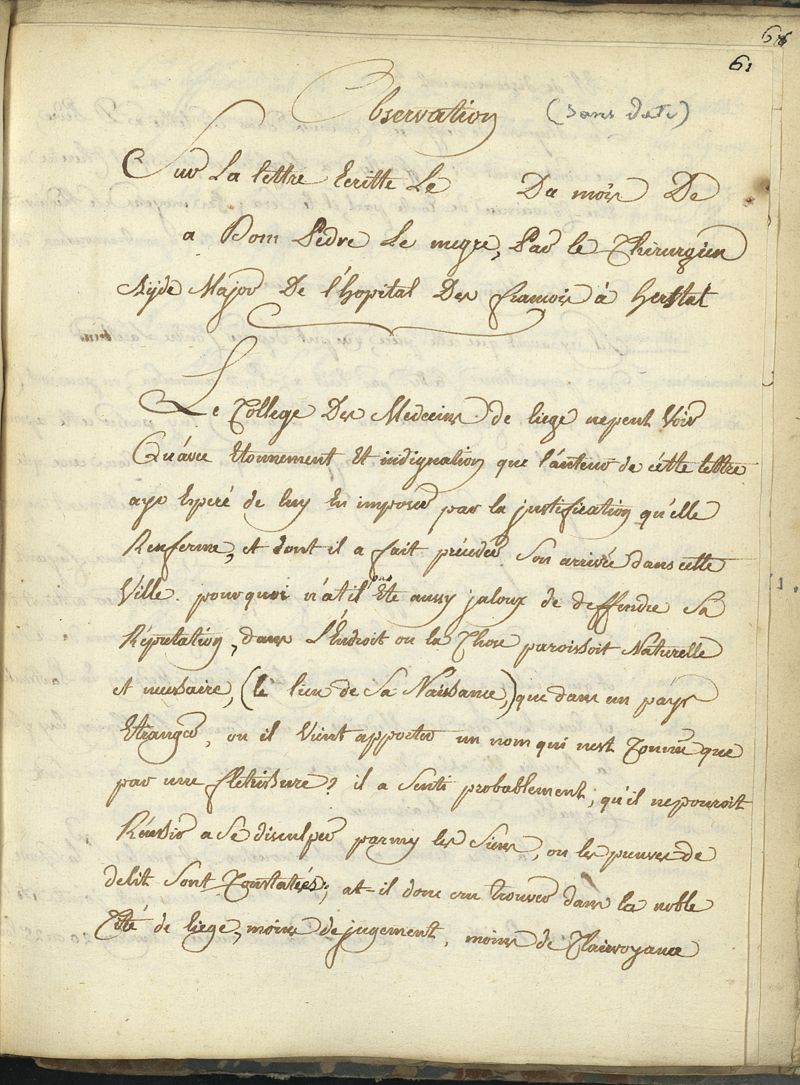 61
Observation (sans date)
Sur La lettre Ecritte Le Du mois De
a Dom Pedre Le megre, Par le Chirurgien
Ayde Major De l'hopital Des francois à Herstal
Le College Des Medecins de liege ne peut Voir
Qu'avec Etonnement Et indignation que l'auteur de cette lettre
aye Esperé de luy En imposer par la justification qu'elle
Renferme, et dont il a fait préceder Son arrivée dans cette
Ville. pourquoi n'at il pas Eté aussy jaloux de deffendre Sa
Réputation, dans L'Endroit ou la Chose paroissoit Naturelle
et necessaire, (le lieu de Sa Naissance,) que dans un pays
Etranger, ou il Vient apporter un nom qui nest Connu que
par une fletrissure? il a Senti probablement, qu'il ne pouroit
Réussir a Se disculper parmy les Siens, ou les preuves de
delit Sont Constatées; at-il donc cru trouver dans la noble
Cité de liege, moins de jugement, moins de Clairvoyance